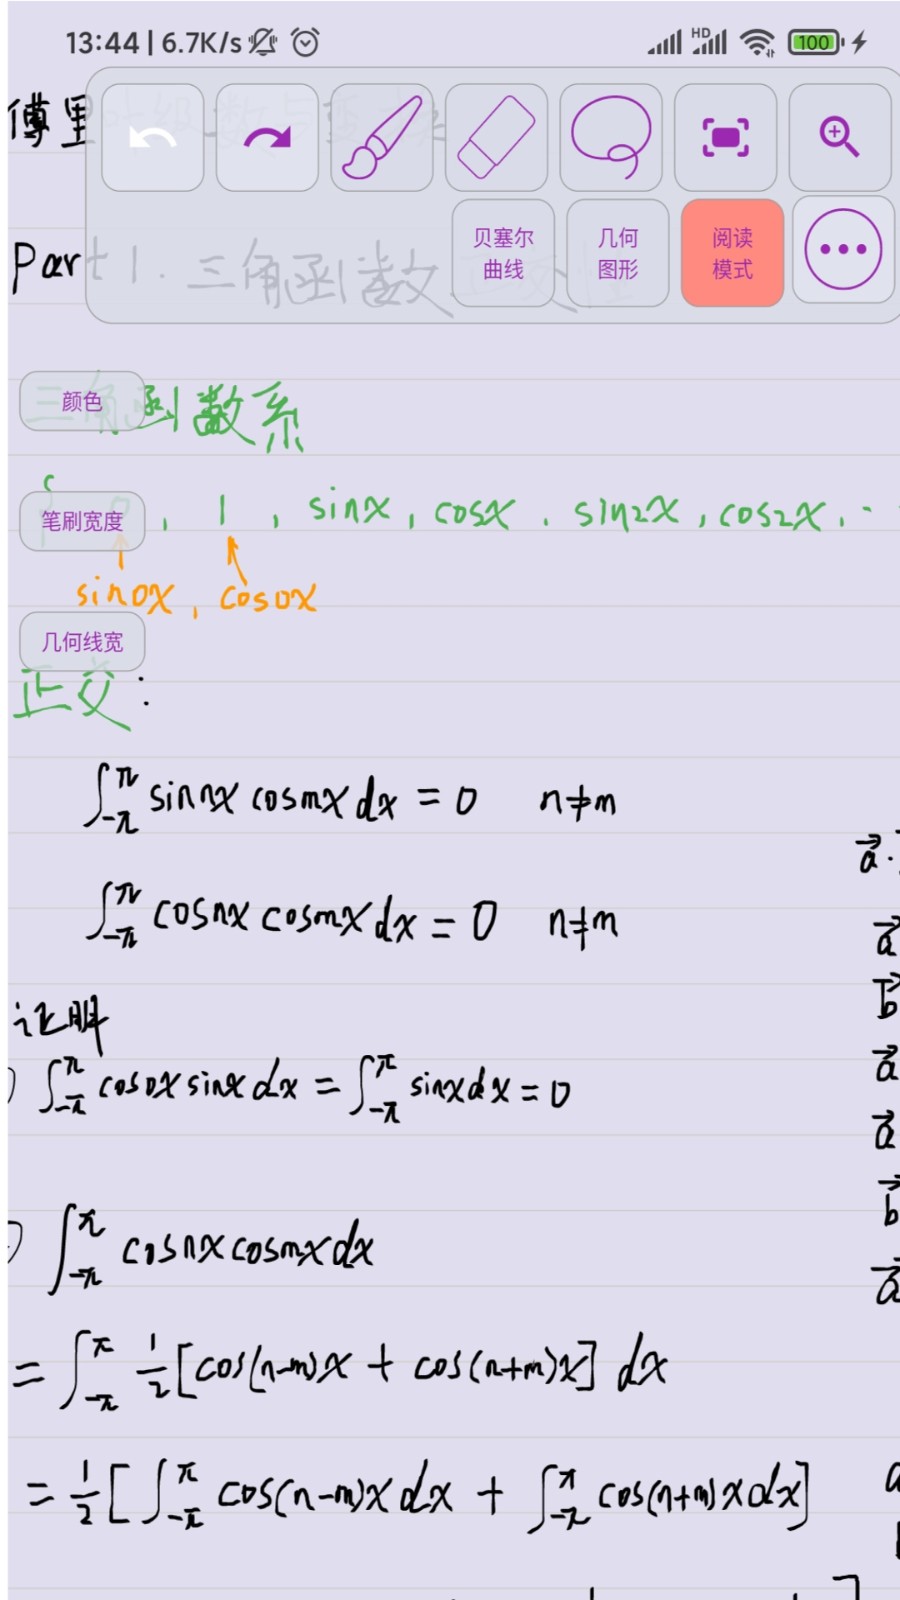 13:44 | 6.7K/s HD 100
傅里叶级数与变换
贝塞尔曲线 几何图形 阅读模式
Part 1. 三角函数正交性
颜色
三角函数系
笔刷宽度
{ 0, 1, sinx, cosx, sin2x, cos2x, ··
sin0x, cos0x
几何线宽
正交:
∫_{-π}^{π} sinnx cosmx dx = 0 n≠m
∫_{-π}^{π} cosnx cosmx dx = 0 n≠m
证明
∫_{-π}^{π} cos0x sinx dx = ∫_{-π}^{π} sinx dx = 0
∫_{-π}^{π} cosnx cosmx dx
= ∫_{-π}^{π} 1/2 [cos(n-m)x + cos(n+m)x] dx
= 1/2 [ ∫_{-π}^{π} cos(n-m)x dx + ∫_{-π}^{π} cos(n+m)x dx]
a⃗ ·
a⃗
b⃗
a⃗
a⃗
b⃗
a⃗